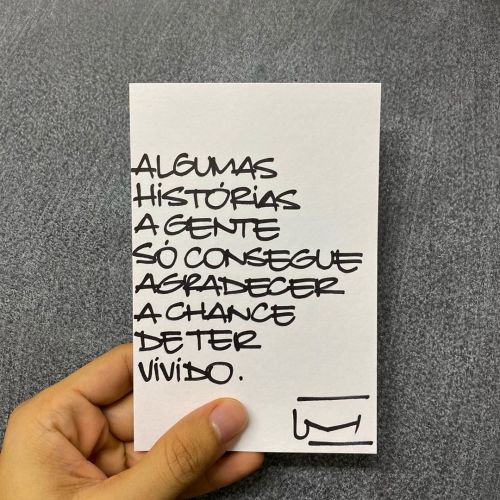 ALGUMAS
HISTÓRIAS
A GENTE
SÓ CONSEGUE
AGRADECER
A CHANCE
DE TER
VIVIDO.